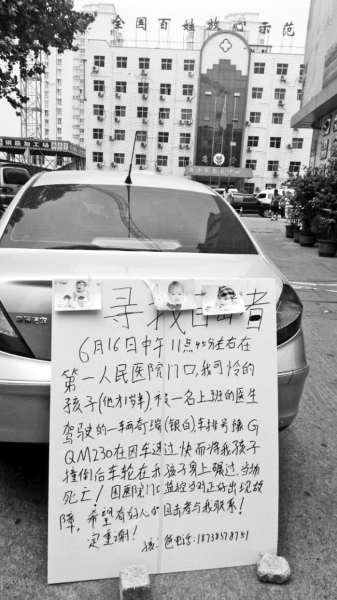 全国百姓放心示范
钢筋加工场
寻找目击者
6月16日中午11点45分左右在
第一人民医院门口,我可怜的
孩子(他才1岁半),被一名上班的医生
驾驶的一辆奇瑞(银白),车牌号豫G
QM230在因车速过快而将我孩子
撞倒后车轮在我孩子身上碾过当场
死亡!因医院门口监控当时正好出现故
障,希望有好心的目击者与我联系!
定重谢!
电话:18738578751